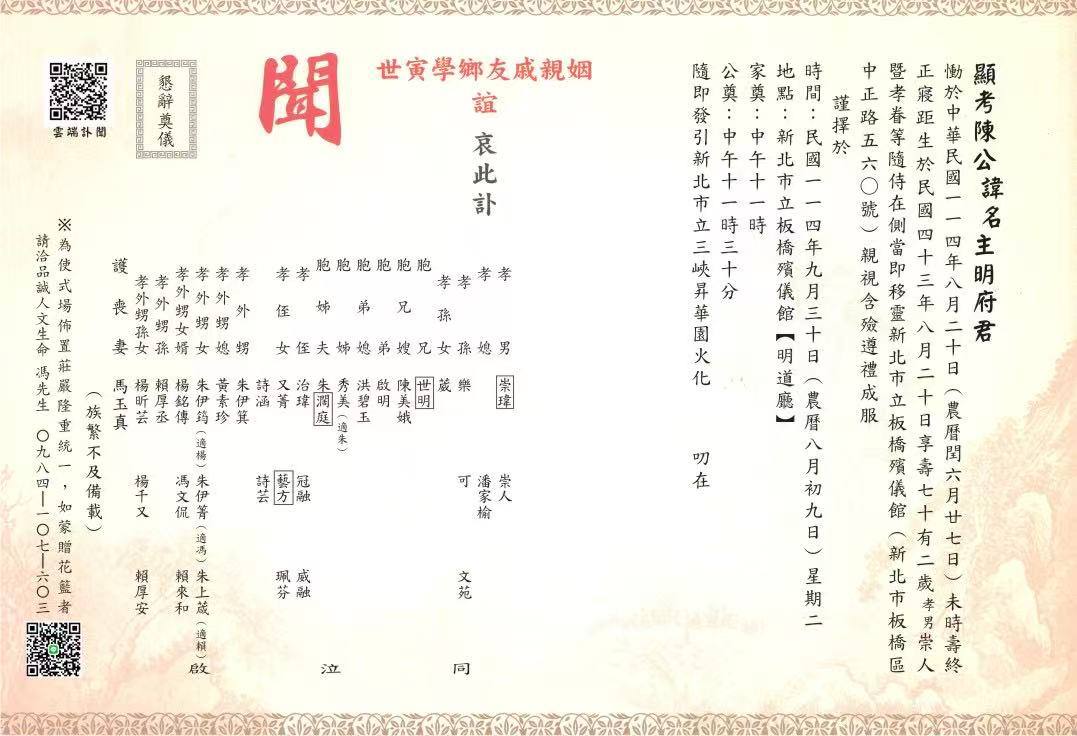 顯考陳公諱名主明府君
慟於中華民國一一四年八月二十日（農曆閏六月廿七日）未時壽終
正寢距生於民國四十三年八月二十日享壽七十有二歲孝男崇人
暨孝眷等隨侍在側當即移靈新北市立板橋殯儀館（新北市板橋區
中正路五六〇號）親視含殮遵禮成服
謹擇於
時間：民國一一四年九月三十日（農曆八月初九日）星期二
地點：新北市立板橋殯儀館【明道廳】
家奠：中午十一時
公奠：中午十一時三十分
隨即發引新北市立三峽昇華園火化　叨在
姻親戚友鄉學寅世
誼
哀此訃
聞
孝男　崇瑋　崇人
孝媳　潘家榆
孝孫　樂　可　文苑
孝孫女　葳
胞兄　世明
胞兄嫂　陳美娥
胞弟　啟明
胞弟媳　洪碧玉
胞姊　秀美（適朱）
胞姊夫　朱潤庭
孝侄　治瑋　冠融　威融
孝侄女　又菁　藝方　珮芬
詩涵　詩芸
孝外甥　朱伊箕
孝外甥媳　黃素珍
孝外甥女　朱伊筠（適楊）　朱伊菁（適馮）　朱上葳（適賴）
孝外甥女婿　楊銘傳　馮文侃　賴來和
孝外甥孫　賴厚丞
孝外甥孫女　楊昕芸　楊千又　賴厚安
護喪妻　馬玉真
同泣啟
（族繁不及備載）
※為使式場佈置莊嚴隆重統一，如蒙贈花籃者
請洽品誠人文生命 馮先生 〇九八四—一〇七—六〇三
懇辭奠儀
雲端訃聞